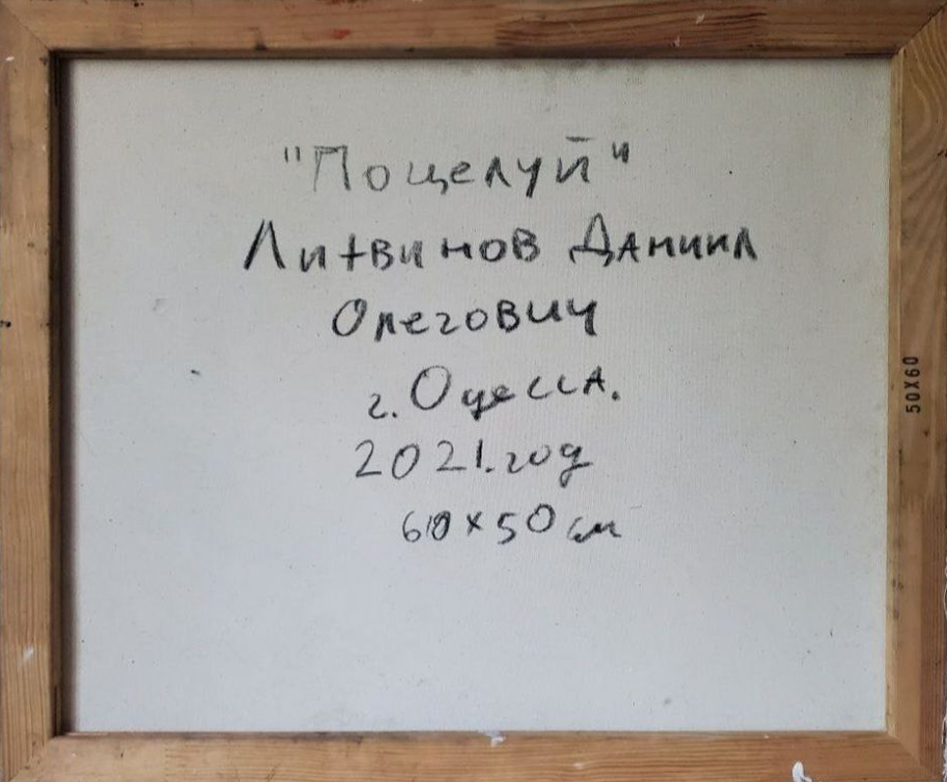 "Поцелуй"
Литвинов Даниил
Олегович
г. Одесса.
2021.год
60x50 см
50X60